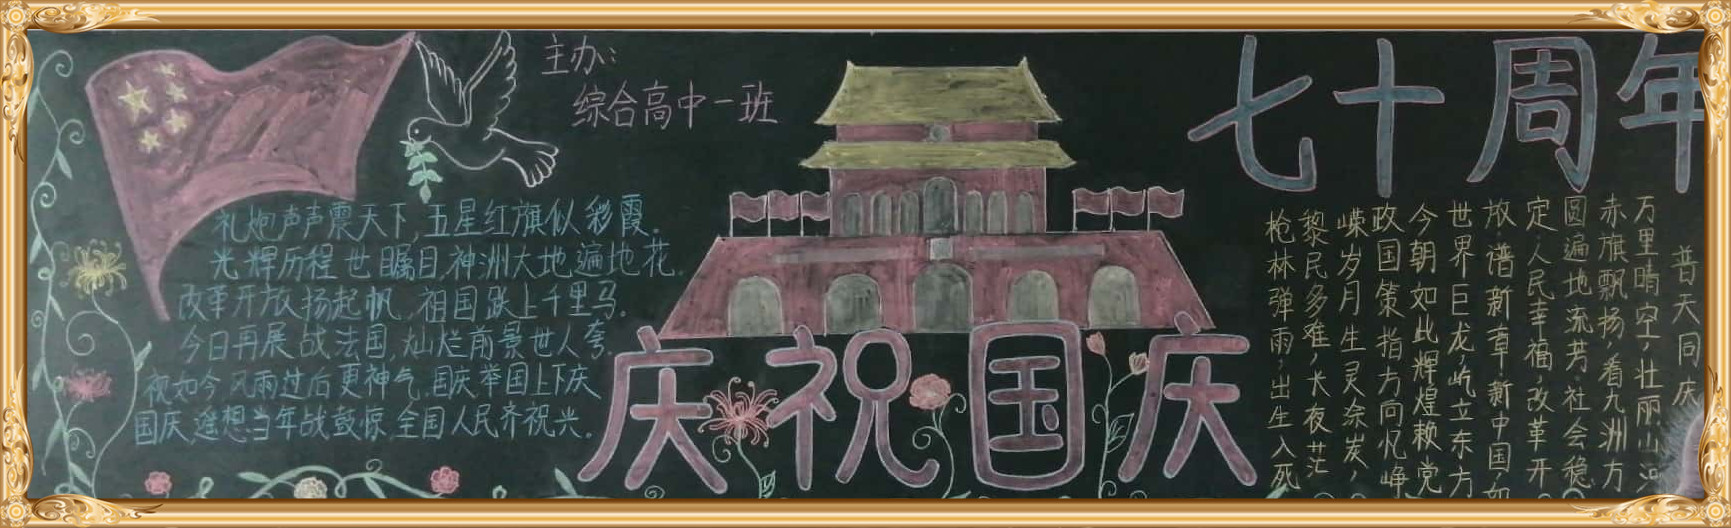 主办:
综合高中一班
七十周年
礼炮声声震天下,五星红旗似彩霞。
光辉历程世瞩目,神洲大地遍地花。
改革开放扬起帆,祖国跃上千里马。
今日再展战法国,灿烂前景世人夸。
祝如今,风雨过后更神气,国庆举国上下庆
国庆遥想当年战鼓惊,全国人民齐祝兴。
庆祝国庆
普天同庆
万里晴空,壮丽山河
赤旗飘扬,看九洲方
圆遍地流芳。社会稳
定,人民幸福,改革开
放谱新章,新中国,如
世界巨龙,屹立东方
今朝如此辉煌赖党
政国策指方向忆峥
嵘岁月生灵涂炭,
黎民多难,长夜茫
枪林弹雨,出生入死